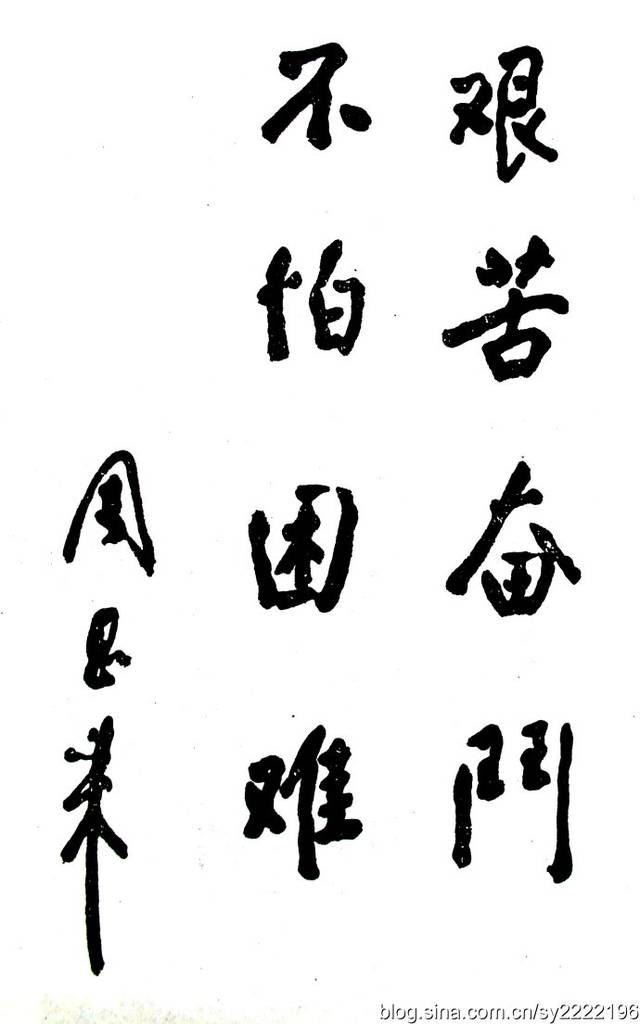 艰苦奋鬥
不怕困难
周恩来
blog.sina.com.cn/sy2222196